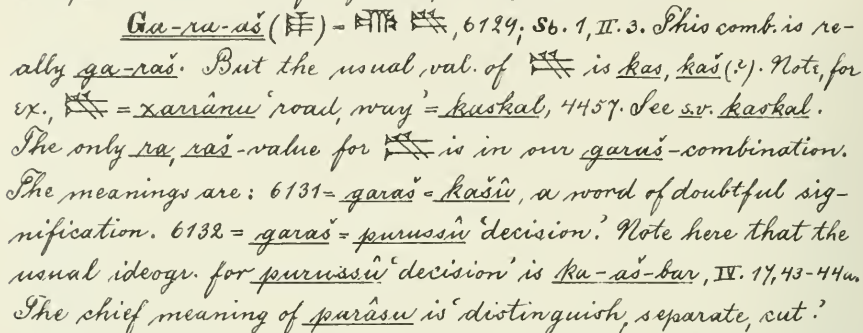 Ga-ra-aš (𒀸) = 𒂵 𒆜, 6129; Sb. 1, II. 3. This comb. is re-
ally ga-raš. But the usual val. of 𒆜 is kas, kaš (?). Note, for
ex., 𒆜 = xarrânu 'road, way' = kaskal, 4457. See s.v. kaskal.
The only ra, raš-value for 𒆜 is in our garaš-combination.
The meanings are: 6131 = garaš = kašû, a word of doubtful sig-
nification. 6132 = garaš = purussû 'decision'. Note here that the
usual ideogr. for purussû 'decision' is ka-aš-bar, IV. 17, 43-44a.
The chief meaning of parâsu is 'distinguish, separate, cut'.